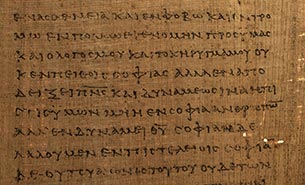 ΕΝΑϹΘΕΝΕΙΑΚΑΙΕΝΦΟΒΩΚΑΙΕΝΤΡΟ
ΜΩΕΝΠΟΛΛΩΕΓΕΝΟΜΗΝΠΡΟϹΥΜΑϹ
ΚΑΙΟΛΟΓΟϹΜΟΥΚΑΙΤΟΚΗΡΥΓΜΑΜΟΥΟΥ
ΚΕΝΠΕΙΘΟΙϹϹΟΦΙΑϹΑΛΛΑΕΝΑΠΟ
ΔΕΙΞΕΙΠΝϹΚΑΙΔΥΝΑΜΕΩϹΙΝΑΗΠΙ
ϹΤΙϹΥΜΩΝΜΗΗΕΝϹΟΦΙΑΑΝΘΡΩΠΩ
ΑΛΛΕΝΔΥΝΑΜΕΙΘΥϹΟΦΙΑΝΔΕ
ΛΑΛΟΥΜΕΝΕΝΤΟΙϹΤΕΛΕΙΟΙϹϹΟΦΙΑ
ΔΕΟΥΤΟΥΑΙΩΝΟϹΤΟΥΤΟΥΟΥΔΕΤΩΝ